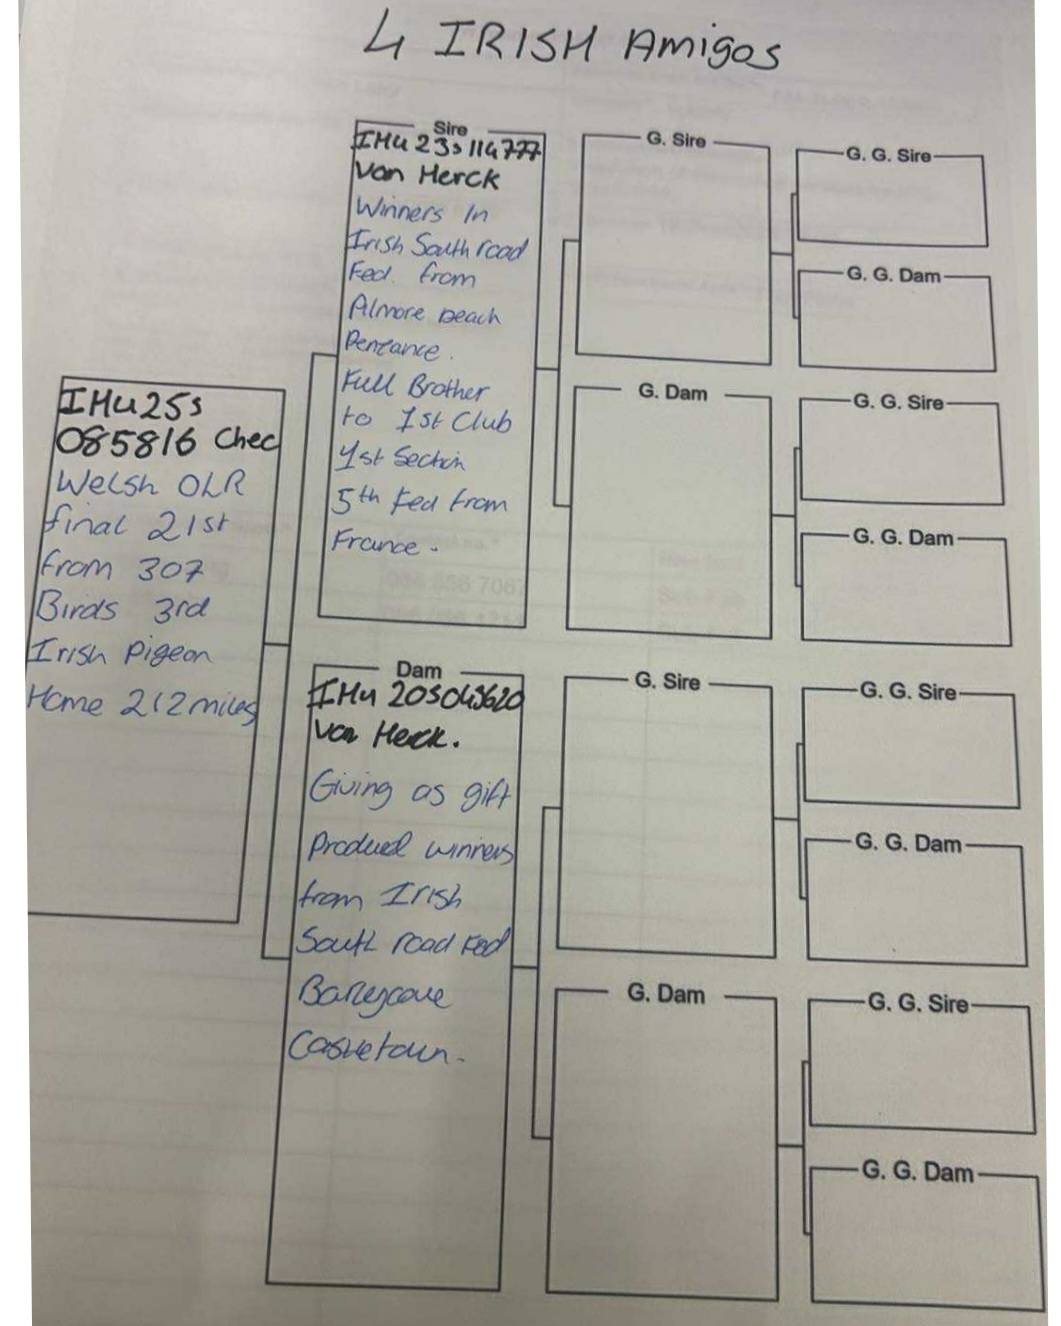 4 IRISH Amigos
Sire
IHU 23s114777
Van Herck
Winners In
Irish South road
Fed. from
Almore beach
Penzance.
Full Brother
to 1st Club
1st Section
5th Fed from
France.
IHU25s
085816 Chec
Welsh OLR
final 21st
from 307
Birds 3rd
Irish Pigeon
Home 212miles
Dam
Van Herck.
Giving as gift
winners
from Irish
South road Fed
G. Sire
G. Dam
G. Sire
G. Dam
G. G. Sire
G. G. Dam
G. G. Sire
G. G. Dam
G. G. Sire
G. G. Dam
G. G. Sire
G. G. Dam